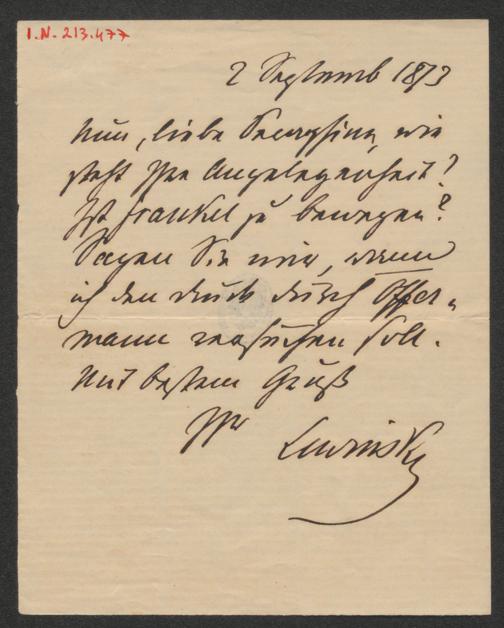 I.N. 213.477
2 Septemb 1873
Nun, liebe Seraphine, wie
steht Ihre Angelegenheit?
Ist Frankel zu bewegen?
Sagen Sie mir, wenn
ich den Druck durch Offer-
mann versuchen soll.
Mit bestem Gruß
Ihr
Lewinsky